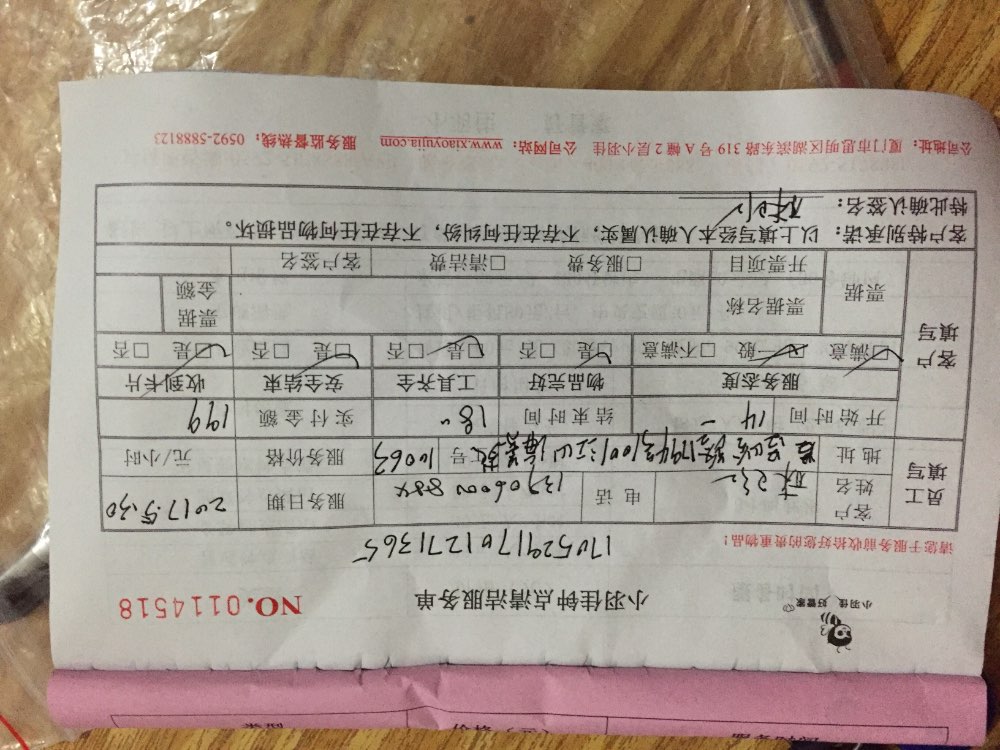 小羽佳，好管家
小羽佳钟点清洁服务单
NO.0114518
17052917012713 65
请您于服务前收拾好您的贵重物品！
员工填写
客户姓名
电话
服务日期 2017.5.30
地址
工号 10063
服务价格 元/小时
开始时间 14
结束时间 18
实付金额 199
客户填写
服务态度 物品完好 工具齐全 安全结束 收到卡片
□满意 □一般 □不满意 □是 □否 □是 □否 □是 □否 □是 □否
票据 票据名称 票据金额
开票项目 □服务费 □清洁费 客户签名
客户特别承诺：以上填写经本人确认属实，不存在任何纠纷，不存在任何物品损坏。
特此确认签名：
公司地址：厦门市思明区湖滨东路 319 号 A 幢 2 层小羽佳 公司网站：www.xiaoyujia.com 服务监督热线：0592-5888123